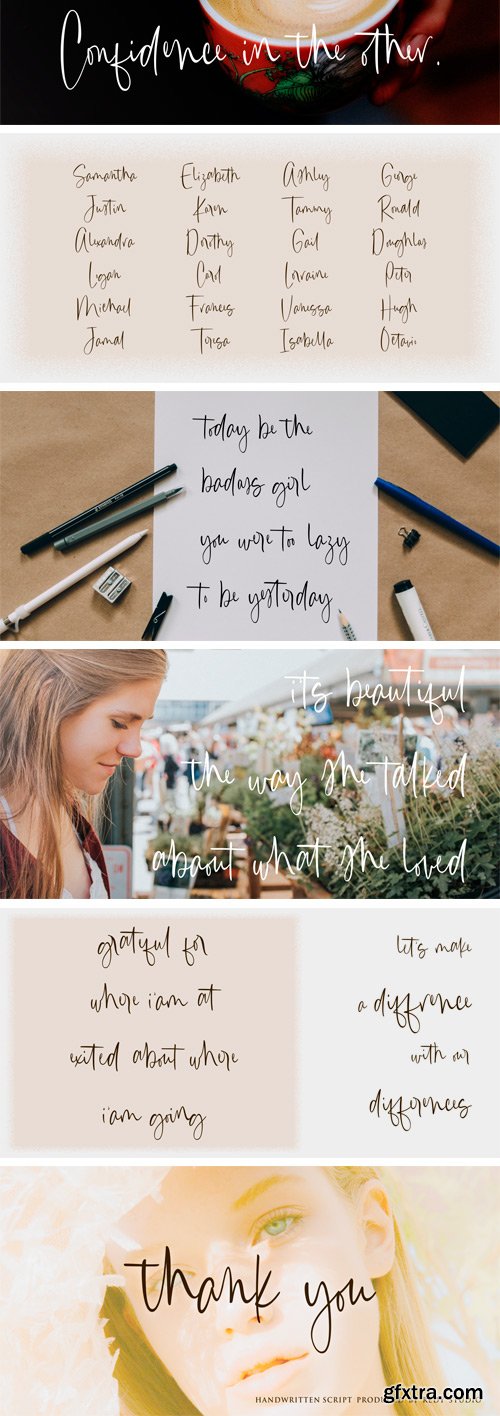 Confidence in the other.
Samantha Elizabeth Ashley George
Justin Karen Tammy Ronald
Alexandra Dorothy Gail Doughlas
Logan Carol Lorraine Peter
Michael Frances Vanessa Hugh
Jamal Teresa Isabella Octavio
today be the
badass girl
you were too lazy
to be yesterday
it's beautiful
the way she talked
about what she loved
grateful for
where i'am at
exited about where
i'am going
let's make
a diffrence
with our
differences
thank you
HANDWRITTEN SCRIPT PRODUCED BY REDY STUDIO
gfxtra.com